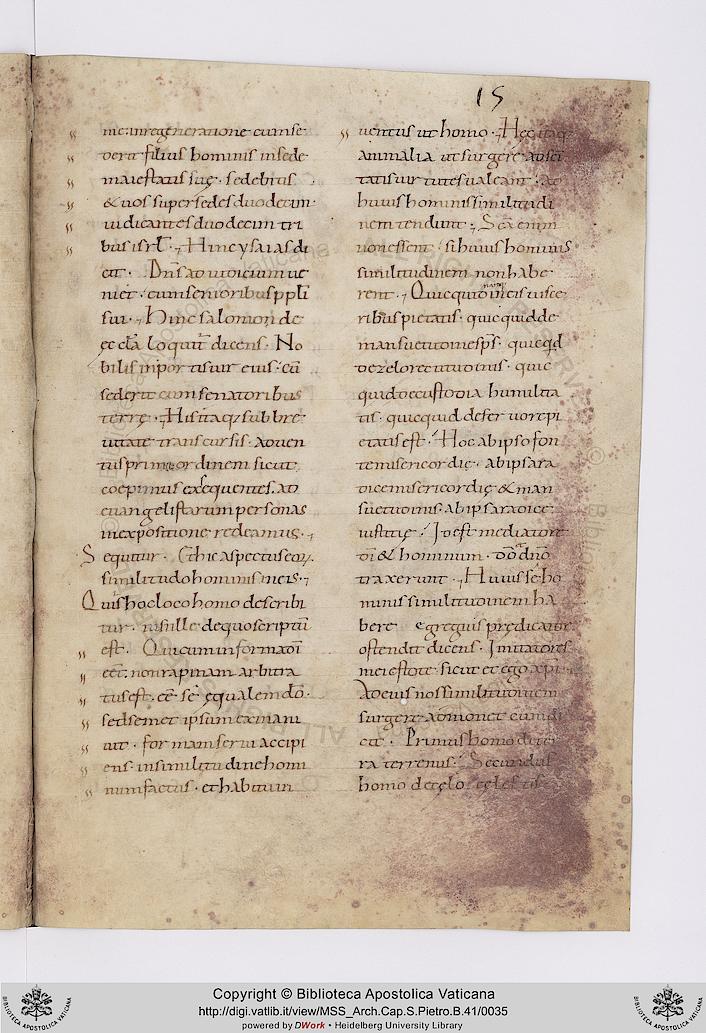 15
me. in regeneratione cum se
derit filius hominis in sede
maiestatis suę. sedebitis
& uos super sedes duodecim
iudicantes duodecim tri
bus isrl. Hinc ysaias di
cit. Dn̄s ad iudicium ue
niet. cum senioribus ppl̄i
sui. Hinc salomon de
ęcclā loquit̄ dicens. No
bilis in portis uir eius. cū
sederit cum senatoribus
terrę. His itaq; sub bre
uitate transcursis. ad uen
tus primi ordinem sicut
coepimus exsequentes. ad
euangelistarum personas
in expositione redeamus.
Sequitur. Et hic aspectus eoꝝ.
similitudo hominis in eis.
Quis hoc loco homo describi
tur. nisi ille de quo scriptū
est. Qui cum in forma dī
eēt. non rapinam arbitra
tus est. eē se ęqualem dō.
sed semet ipsum exinani
uit. formam serui accipi
ens. in similitudine homi
num factus. et habitu in
uentus ut homo. Hęc itaq
animalia ut surgere ad sci
tatis uirtutes ualeant. ad
huius hominis similitudi
nem tendunt. Scā enim
non essent. si huius hominis
similitudinem non habe
rent. Quicquid namq; in eis uisce
ribus pietatis. quicquid de
mansuetudine sps̄. quicqd
de zelo rectitudinis. quic
quid de custodia humilita
tis. quicquid de feruore pi
etatis est. Hoc ab ipso fon
te misericordię. ab ipsa ra
dice misericordię & man
suetudinis. ab ipsa radice
iustitię. Id est mediatore
dī & hominum. dō dn̄o
traxerunt. Huius se ho
minis similitudinem ha
bere egregius prędicator
ostendit dicens. Imitatores
mei estote. sicut et ego xp̄i.
Ad eius nos similitudinem
surgere admonet cum di
cit. Primus homo de ter
ra terrenus. Secundus
homo de cęlo cęlestis
Copyright © Biblioteca Apostolica Vaticana
http://digi.vatlib.it/view/MSS_Arch.Cap.S.Pietro.B.41/0035
powered by DWork • Heidelberg University Library